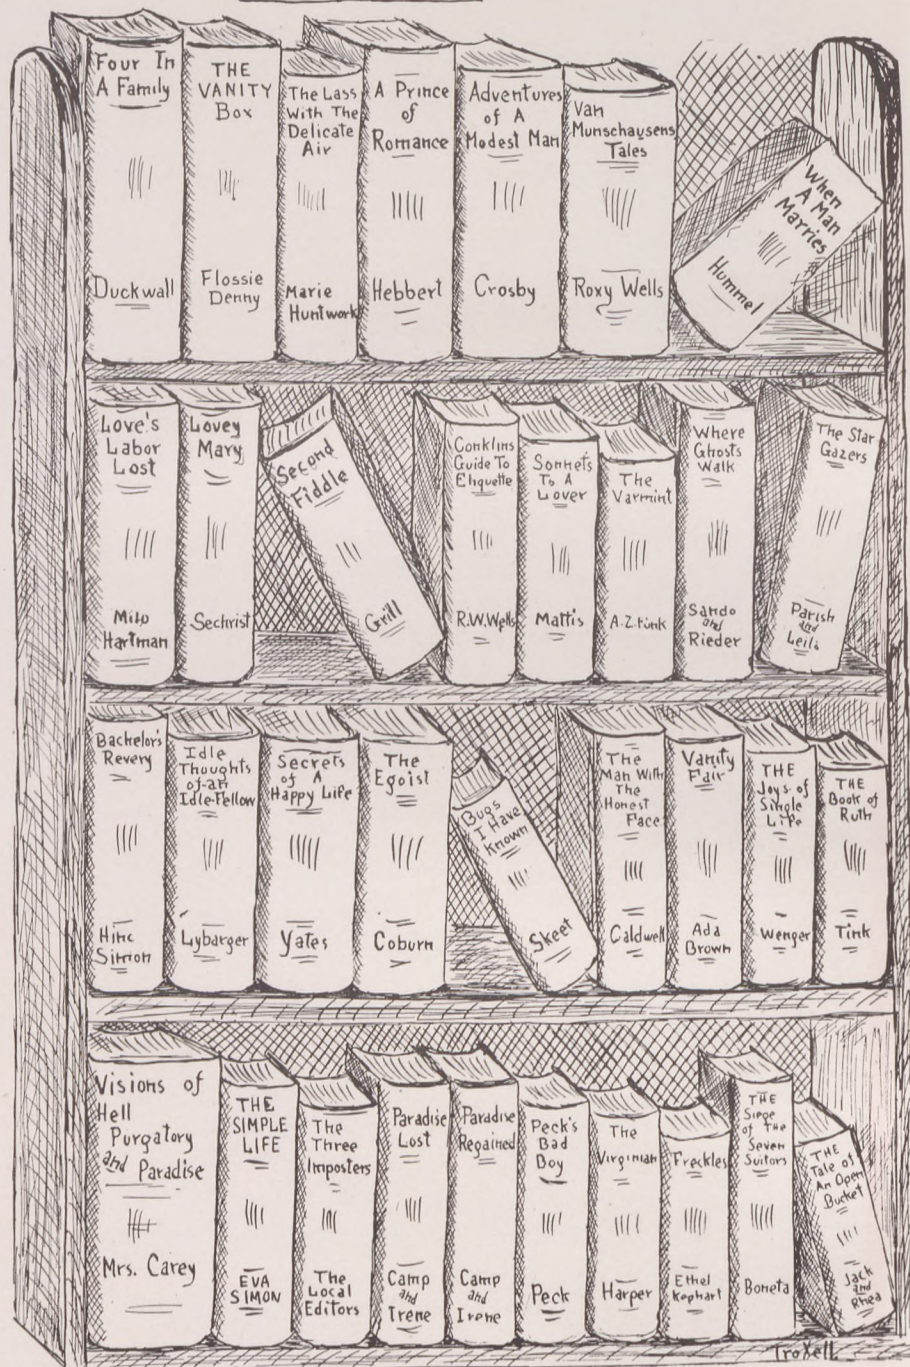 Four In
A Family
Duckwall
THE
VANITY
Box
Flossie
Denny
The Lass
With The
Delicate
Air
Marie
Huntwork
A Prince
of
Romance
Hebbert
Adventures
of A
Modest Man
Crosby
Van
Munschausens
Tales
Roxy Wells
When
A Man
Marries
Hummel
Love's
Labor
Lost
Milo
Hartman
Lovey
Mary
Sechrist
Second
Fiddle
Grill
Conklins
Guide To
Etiquette
R.W.Wells
Sonnets
To A
Lover
Mattis
The
Varmint
A.Z.Funk
Where
Ghosts
Walk
Sando
and
Rieder
The Star
Gazers
Parish
and
Leila
Bachelor's
Revery
Hinc
Simon
Idle
Thoughts
of-an
Idle-Fellow
Lybarger
Secrets
of A
Happy Life
Yates
The
Egoist
Coburn
Bugs
I Have
Known
Skeet
The
Man With
The
Honest
Face
Caldwell
Vanity
Fair
Ada
Brown
THE
Joys of
Single
Life
Wenger
THE
Book of
Ruth
Tink
Visions of
Hell
Purgatory
and Paradise
Mrs. Carey
THE
SIMPLE
LIFE
EVA
SIMON
The
Three
Imposters
The
Local
Editors
Paradise
Lost
Camp
and
Irene
Paradise
Regained
Camp
and
Irene
Peck's
Bad
Boy
Peck
The
Virginian
Harper
Freckles
Ethel
Kephart
THE
Siege
of The
Seven
Suitors
Boneta
THE
Tale of
An Open
Bucket
Jack
and
Rhea
Troxell